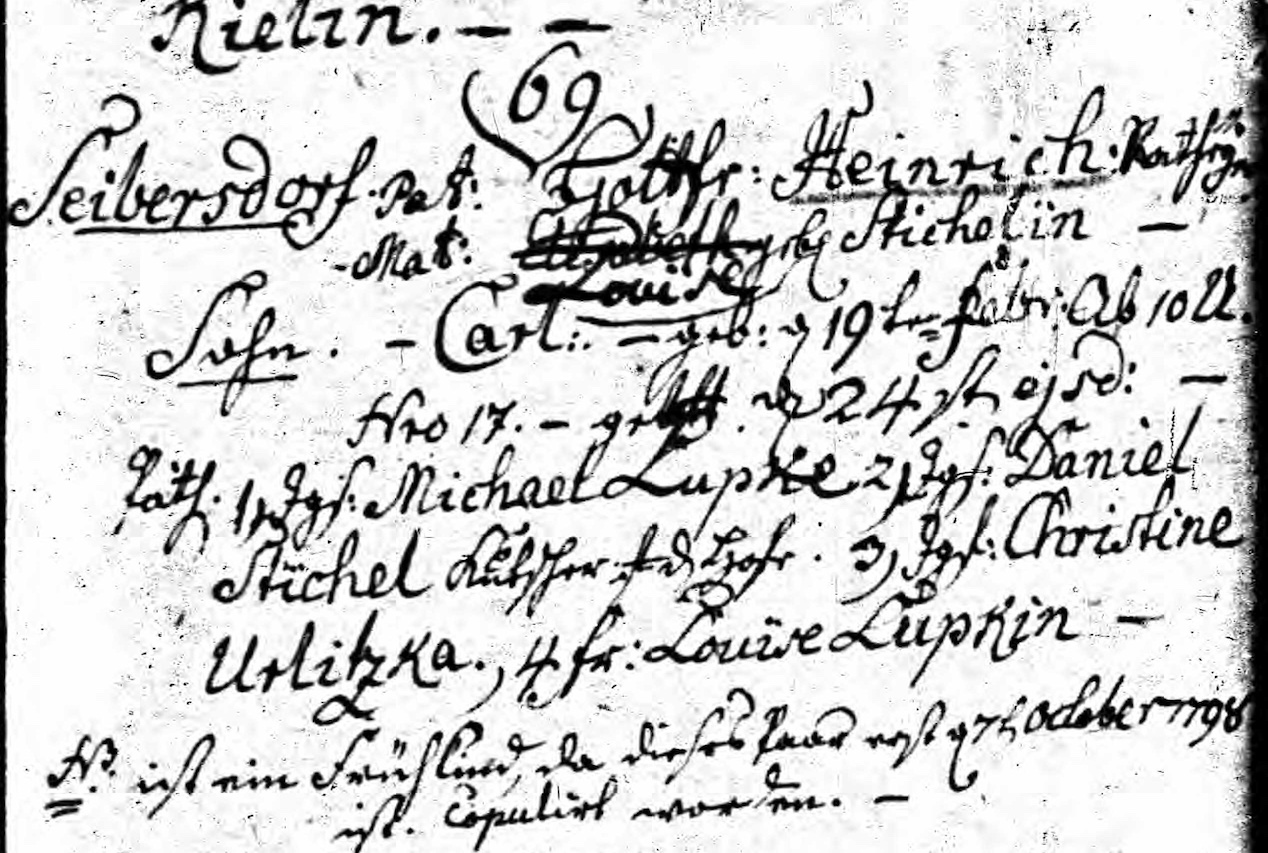 Rielin. – –
69
Seibersdorf. Pat: Gottfr: Heinrich:
- Mat: geb Stichelin –
Louise
Sohn. - Carl:. - geb: d 19 te Febr: Ab 10 U.
Nro 17. - get. d 24 st ejsd: –
Path. 1, Jgs. Michael Lupke 2, Jgs. Daniel
Stichel Kutscher 3, Jgf: Christine
Urlitzka., 4 fr: Louise Lupkin –
NB. ist ein Frühkind, da dieses Paar erst d 7 t October 1798
ist. Copulirt worden. –